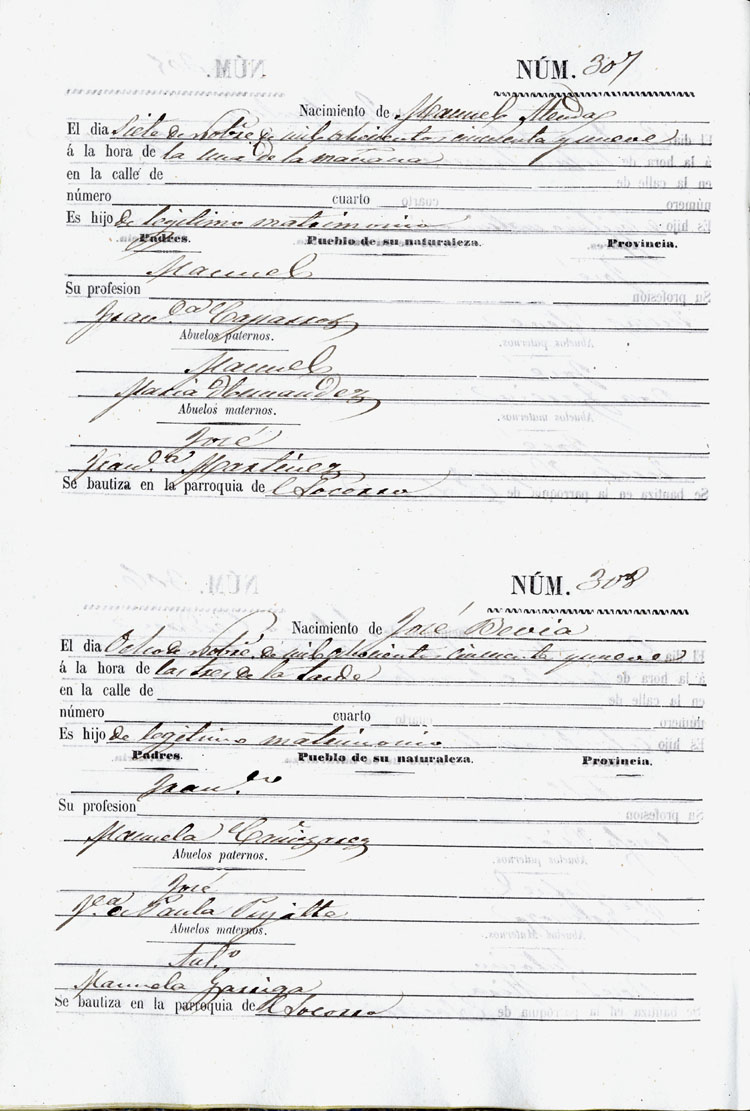 NÚM. 307
Nacimiento de Manuel
El dia Siete de Nobre. de mil ochocientos cincuenta y nueve
á la hora de la una de la mañana
en la calle de
número cuarto
Es hijo de legitimo matrimonio
Padres. Pueblo de su naturaleza. Provincia.
Manuel
Su profesion
Fran.ca
Abuelos paternos.
Manuel
Maria Hernandez
Abuelos maternos.
José
Fran.ca Martinez
Se bautiza en la parroquia de el Socorro
NÚM. 308
Nacimiento de José Bevia
El dia Ocho de Nobre. de mil ochocientos cincuenta y nueve
á la hora de las tres de la tarde
en la calle de
número cuarto
Es hijo de legitimo matrimonio
Padres. Pueblo de su naturaleza. Provincia.
Fran.co
Su profesion
Manuela Cañizares
Abuelos paternos.
José
F.ca de Paula
Abuelos maternos.
Ant.o
Manuela Garriga
Se bautiza en la parroquia de el Socorro